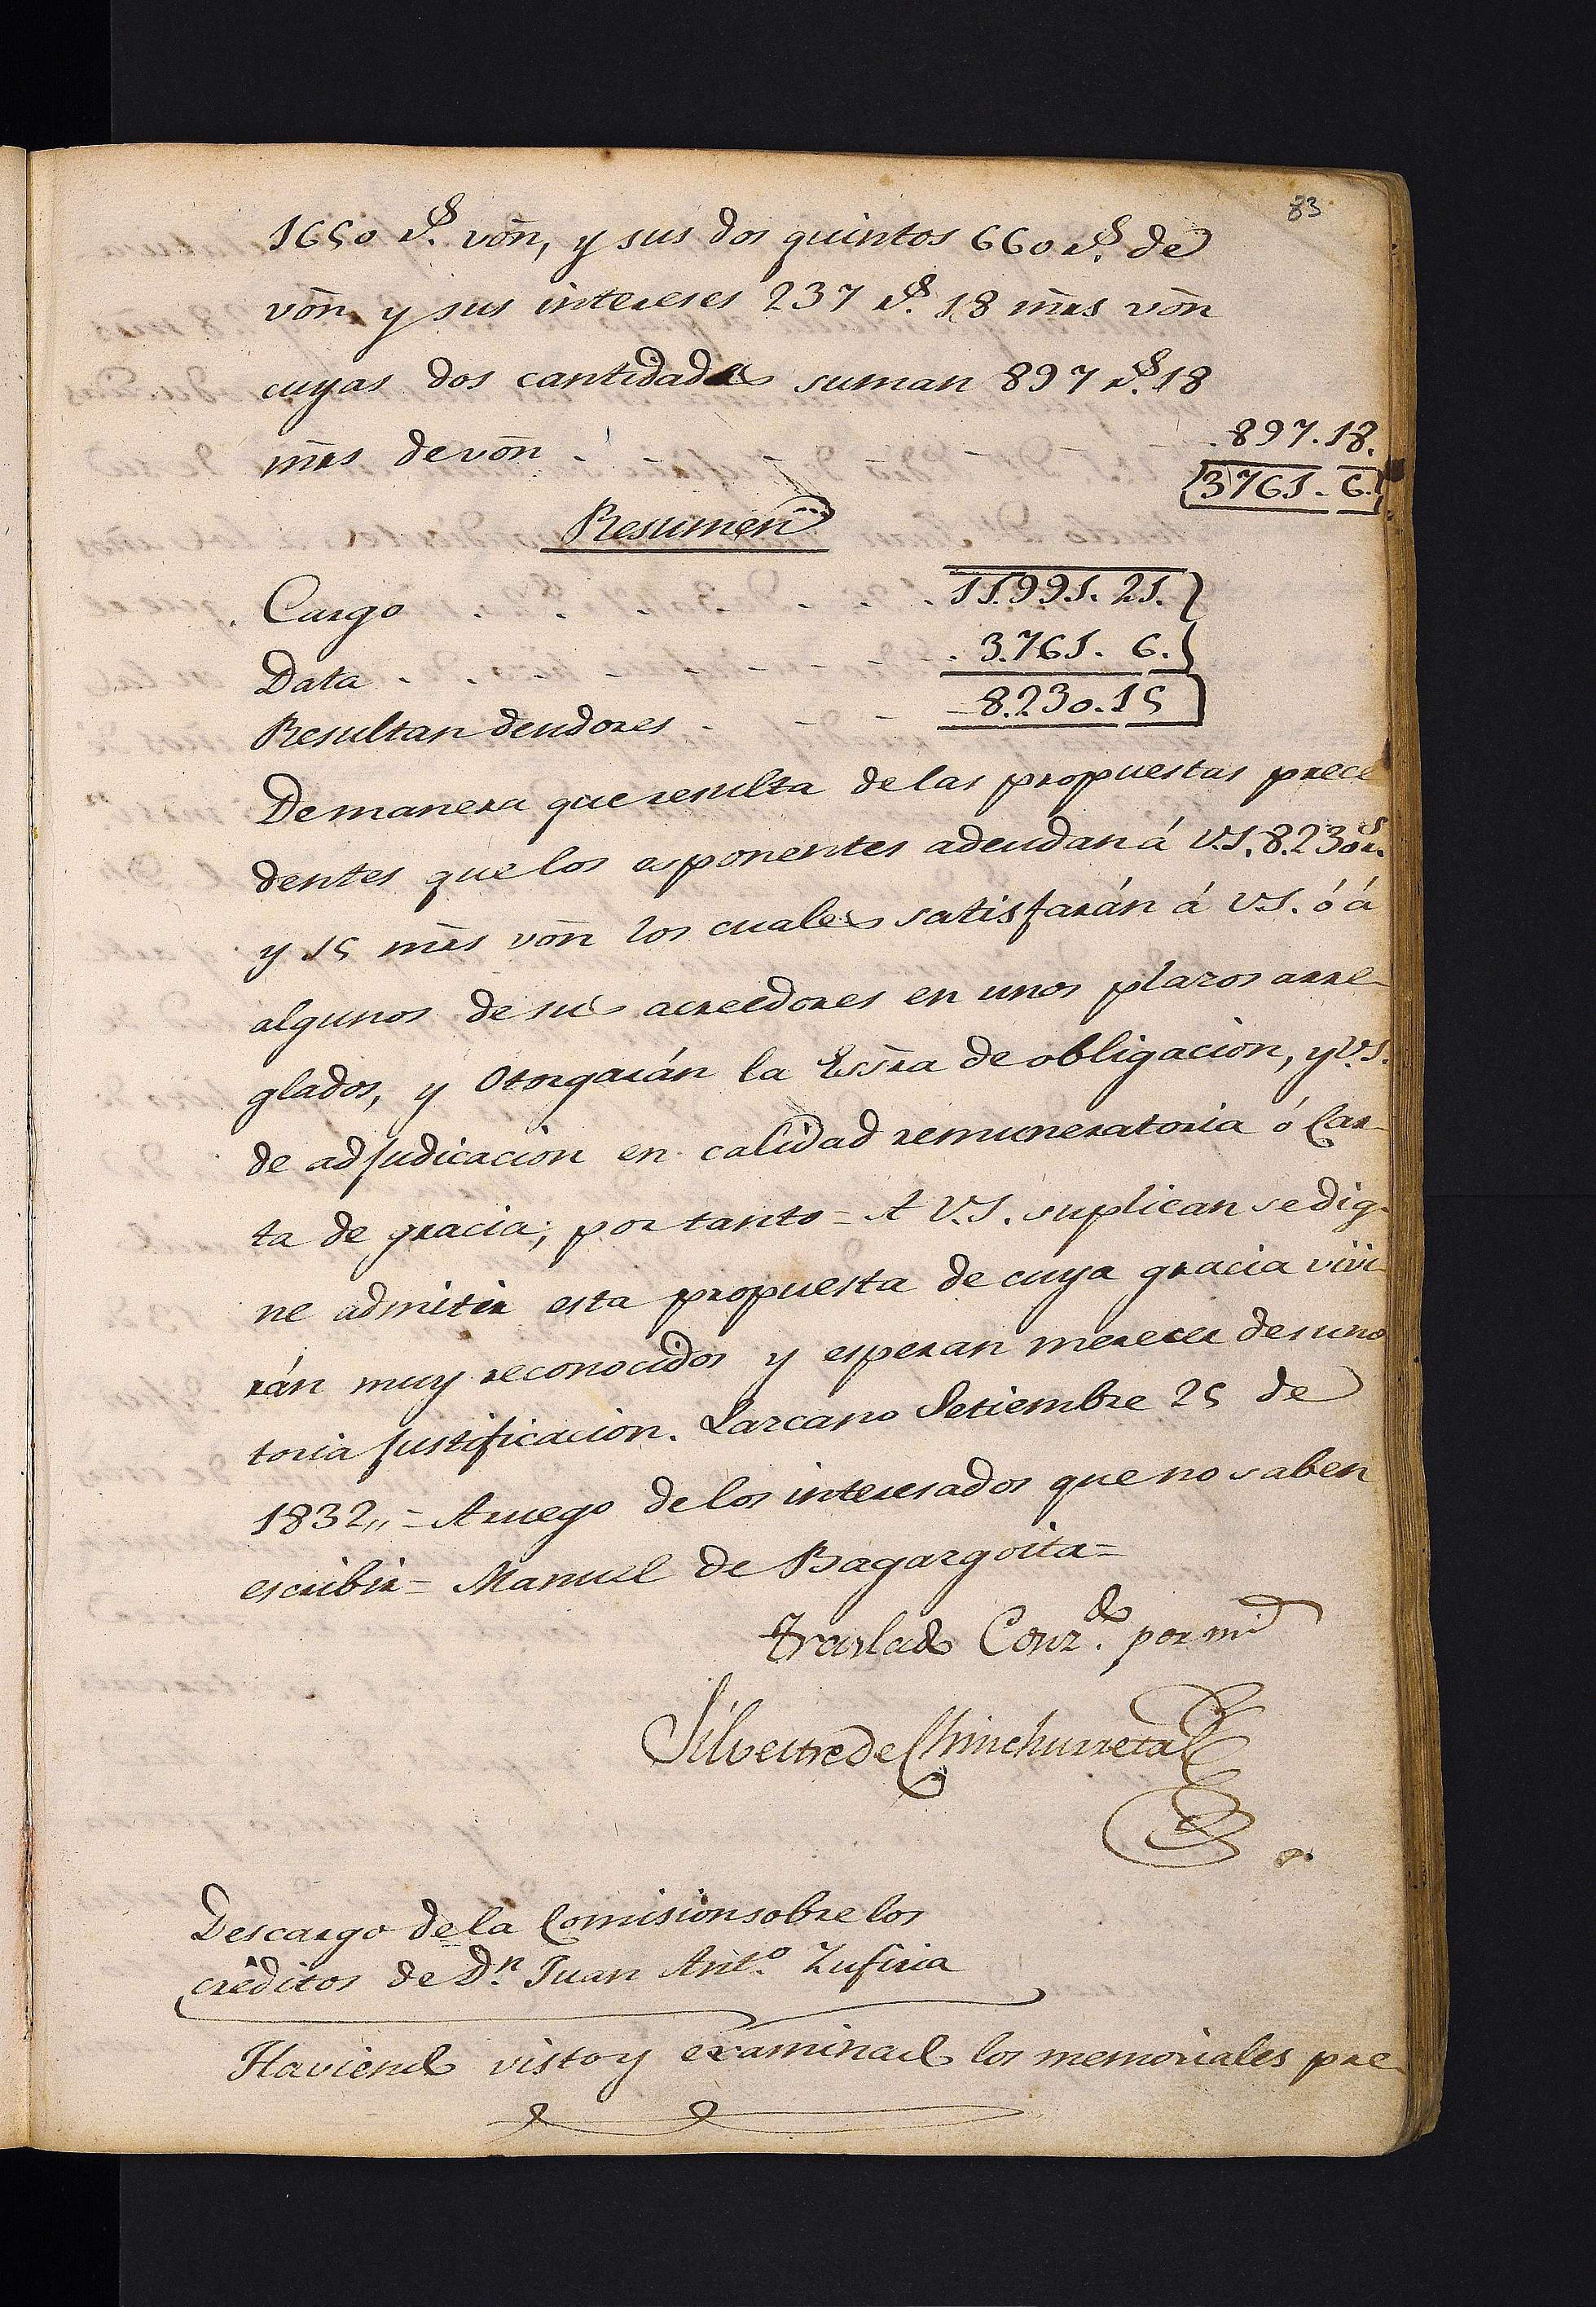 83
1650 r.s von, y sus dos quintos 660 r.s de
von y sus intereses 237 r.s 18 mrs von
cuyas dos cantidades suman 897 r.s 18
mrs de von . - - - - - - . 897.18.
3761. 6.
Resumen
Cargo . . . . . . . 11.991. 21.
Data . . . - - - - . 3.761. 6.
Resultan deudores . - - - 8.230.15
De manera que resulta de las propuestas prece
dentes que los esponentes adeudan á V.S. 8.230 r.s
y 15 mrs von los cuales satisfarán á V.S. ó á
algunos de sus acreedores en unos plazos arre-
glados, y Otorgarán la Essra de obligacion, y V.S.
de adjudicacion en calidad remuneratoria ó Car-
ta de gracia; por tanto = A V.S. suplican se dig-
ne admitir esta propuesta de cuya gracia vivi
rán muy reconocidos y esperan merecer de su no
toria justificacion. Lazcano Setiembre 25 de
1832,, = A ruego de los interesados que no saben
escribir = Manuel de Bagazgoita =
Traslado Conz.do por mi
Silvestre de Chinchurreta
Descargo de la Comision sobre los
créditos de D.n Juan Ant.o Zufiria
Haviendo visto y examinado los memoriales pre